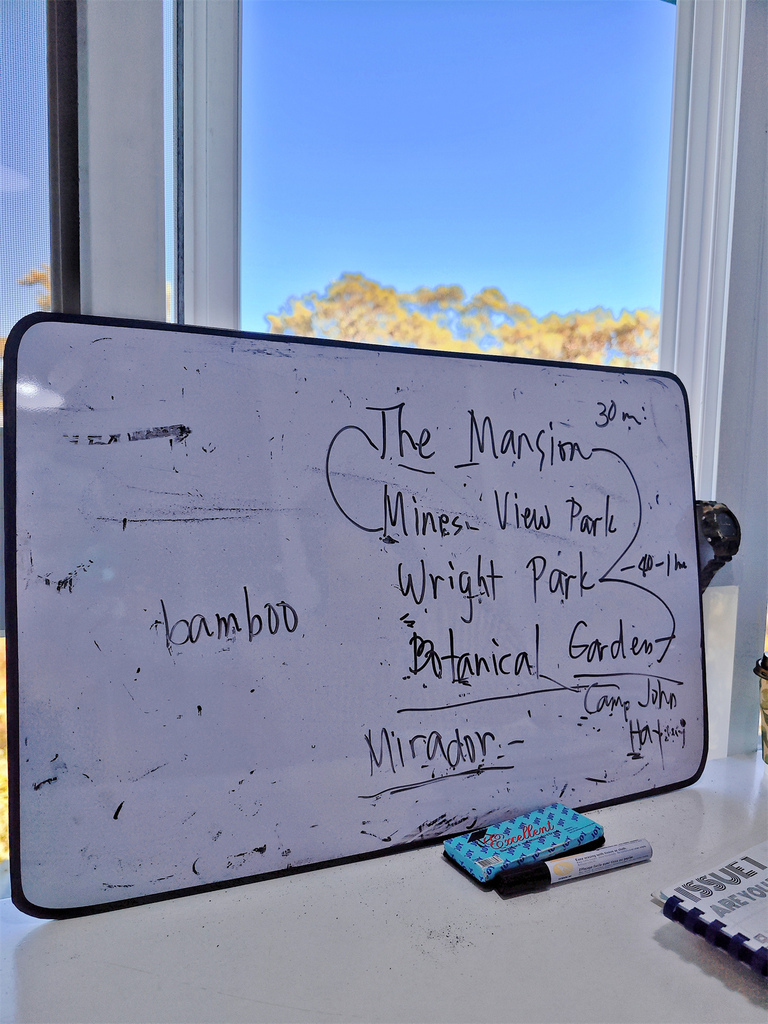 30 m
The Mansion
Mines View Park
Wright Park
-40-1 hr
bamboo
Botanical Garden
Camp John
Mirador -
Excellent
ISSUE 1
ARE YOU